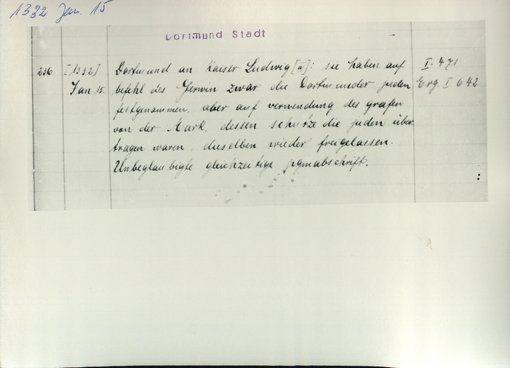 1332 Jan. 15
Dortmund Stadt
236 [1332] Jan. 15. Dortmund an Kaiser Ludwig [4]: sie haben auf I. 471
befehl des Gerwin zwar die Dortmunder juden Erg. I 642
festgenommen, aber auf verwendung des Grafen
von der Mark, dessen schutze die juden über
tragen waren, dieselben wieder freigelassen.
Unbeglaubigte gleichzeitige pgmabschrift.